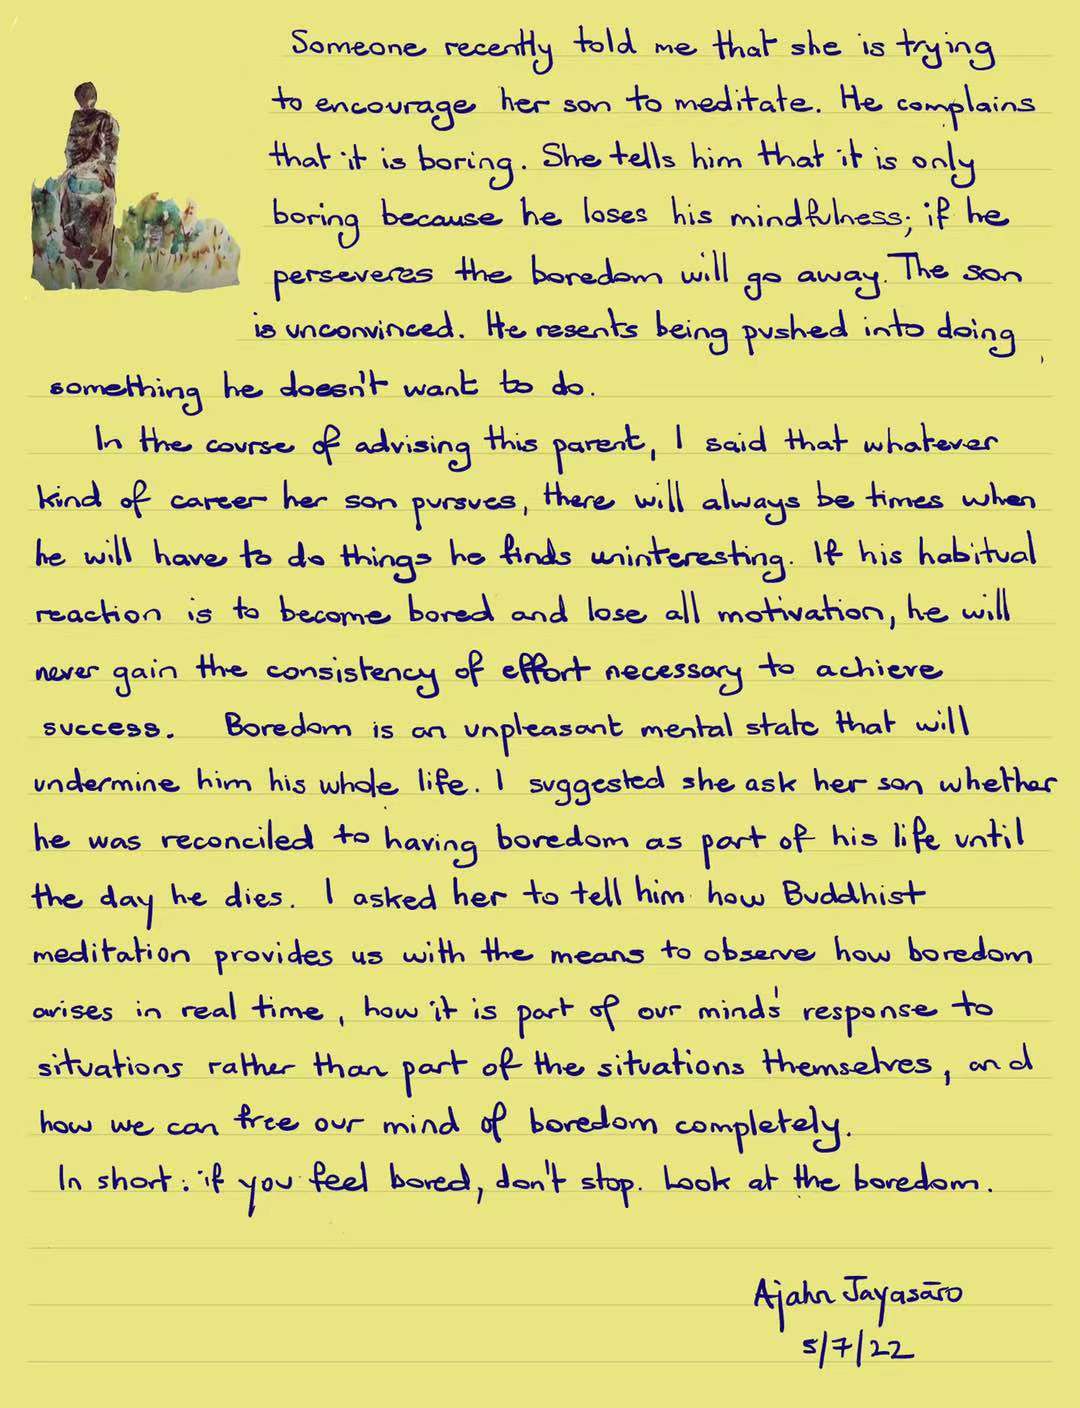 Someone recently told me that she is trying
to encourage her son to meditate. He complains
that it is boring. She tells him that it is only
boring because he loses his mindfulness; if he
perseveres the boredom will go away. The son
is unconvinced. He resents being pushed into doing
something he doesn't want to do.
In the course of advising this parent, I said that whatever
kind of career her son pursues, there will always be times when
he will have to do things he finds uninteresting. If his habitual
reaction is to become bored and lose all motivation, he will
never gain the consistency of effort necessary to achieve
success. Boredom is an unpleasant mental state that will
undermine him his whole life. I suggested she ask her son whether
he was reconciled to having boredom as part of his life until
the day he dies. I asked her to tell him how Buddhist
meditation provides us with the means to observe how boredom
arises in real time, how it is part of our mind's response to
situations rather than part of the situations themselves, and
how we can free our mind of boredom completely.
In short: if you feel bored, don't stop. Look at the boredom.
Ajahn Jayasāro
5/7/22